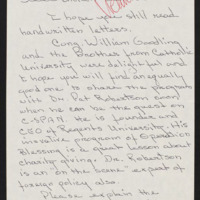 I hope you still read
handwritten letters.
Cong. William Goodling
and the Brother from Catholic
University were delightful and
I hope you will find an equally
good one to share the program
with Dr. Pat Robertson
when he can be the guest on
C-SPAN. He is founder and
CEO of Regents University. His
program of Operation
Blessing is a great lesson about
charity giving. Dr. Robertson
is an on the same expert of
foreign policy also.
Please explain the